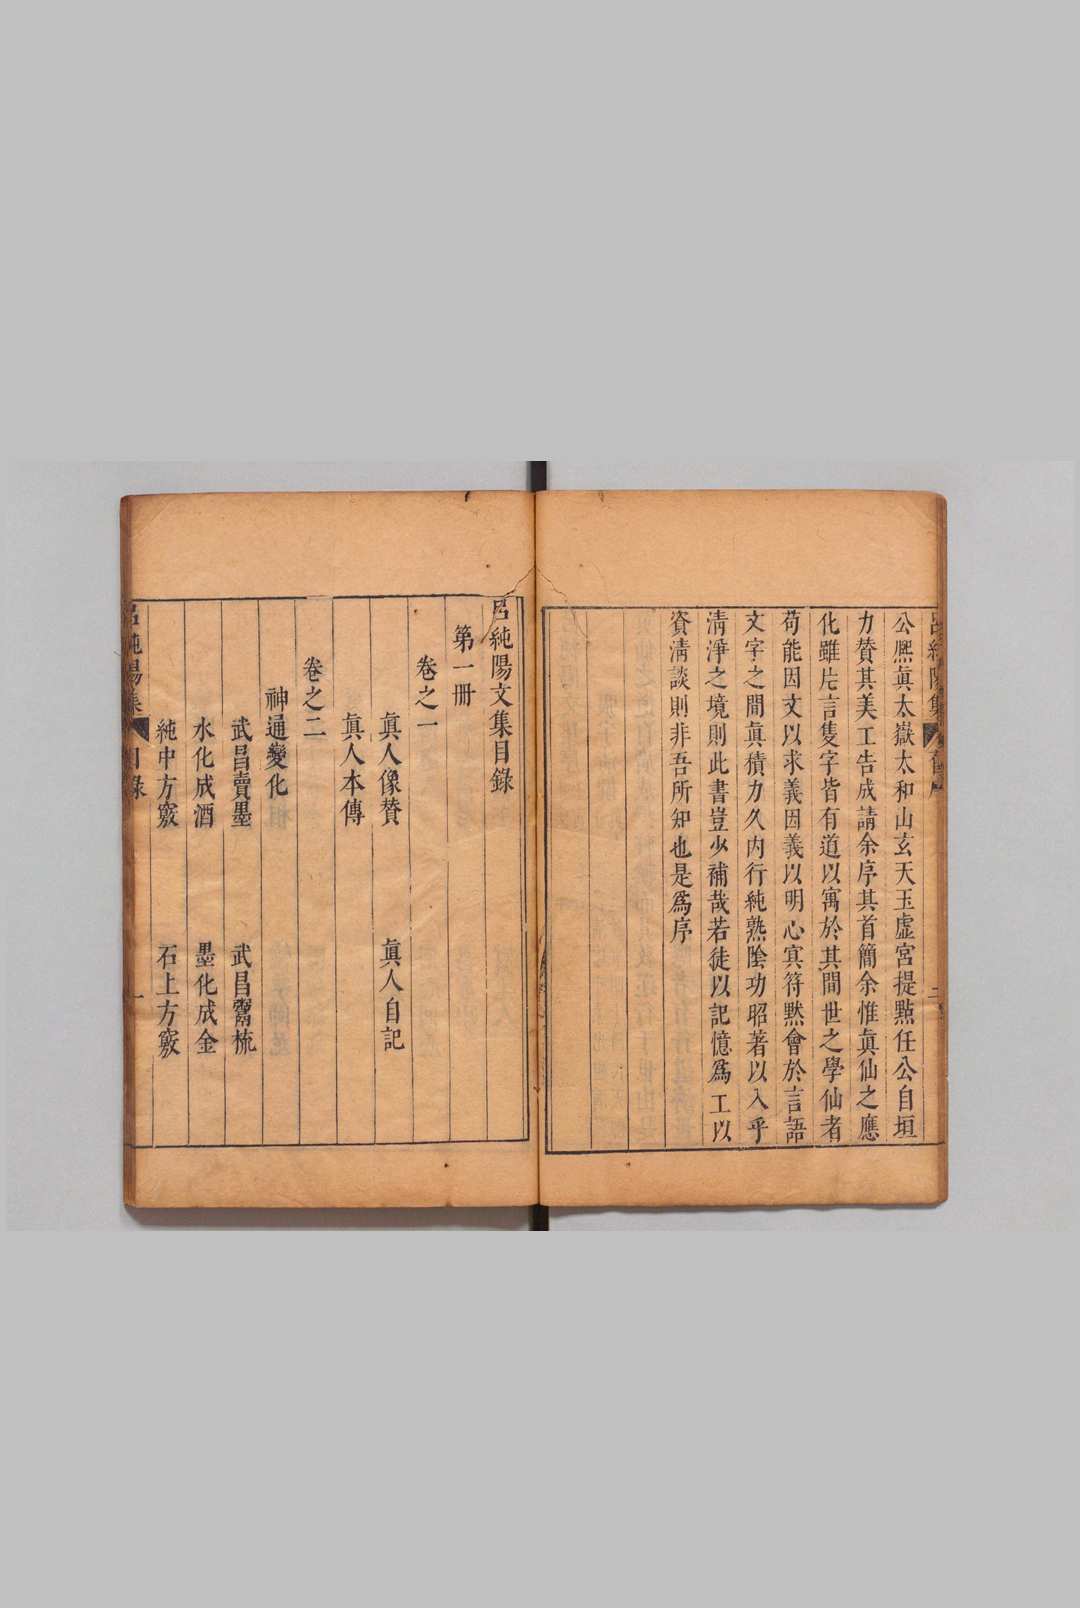 公熈眞太嶽太和山玄天玉虛宮提㸃任公自垣
力賛其美工告成請余序其首簡余惟眞仙之應
化雖片言隻字皆有道以寓於其間世之學仙者
苟能因文以求義因義以明心㝠符黙會於言語
文字之間眞積力久内行純熟陰功昭著以入乎
清淨之境則此書豈少補哉若徒以記憶爲工以
資清談則非吾所知也是爲序
呂純陽文集目錄
第一册
卷之一
眞人像賛　眞人自記
眞人本傳
卷之二
神通變化
武昌賣墨　武昌鬻梳
水化成酒　墨化成金
純中方竅　石上方竅
呂純陽集　目錄　一